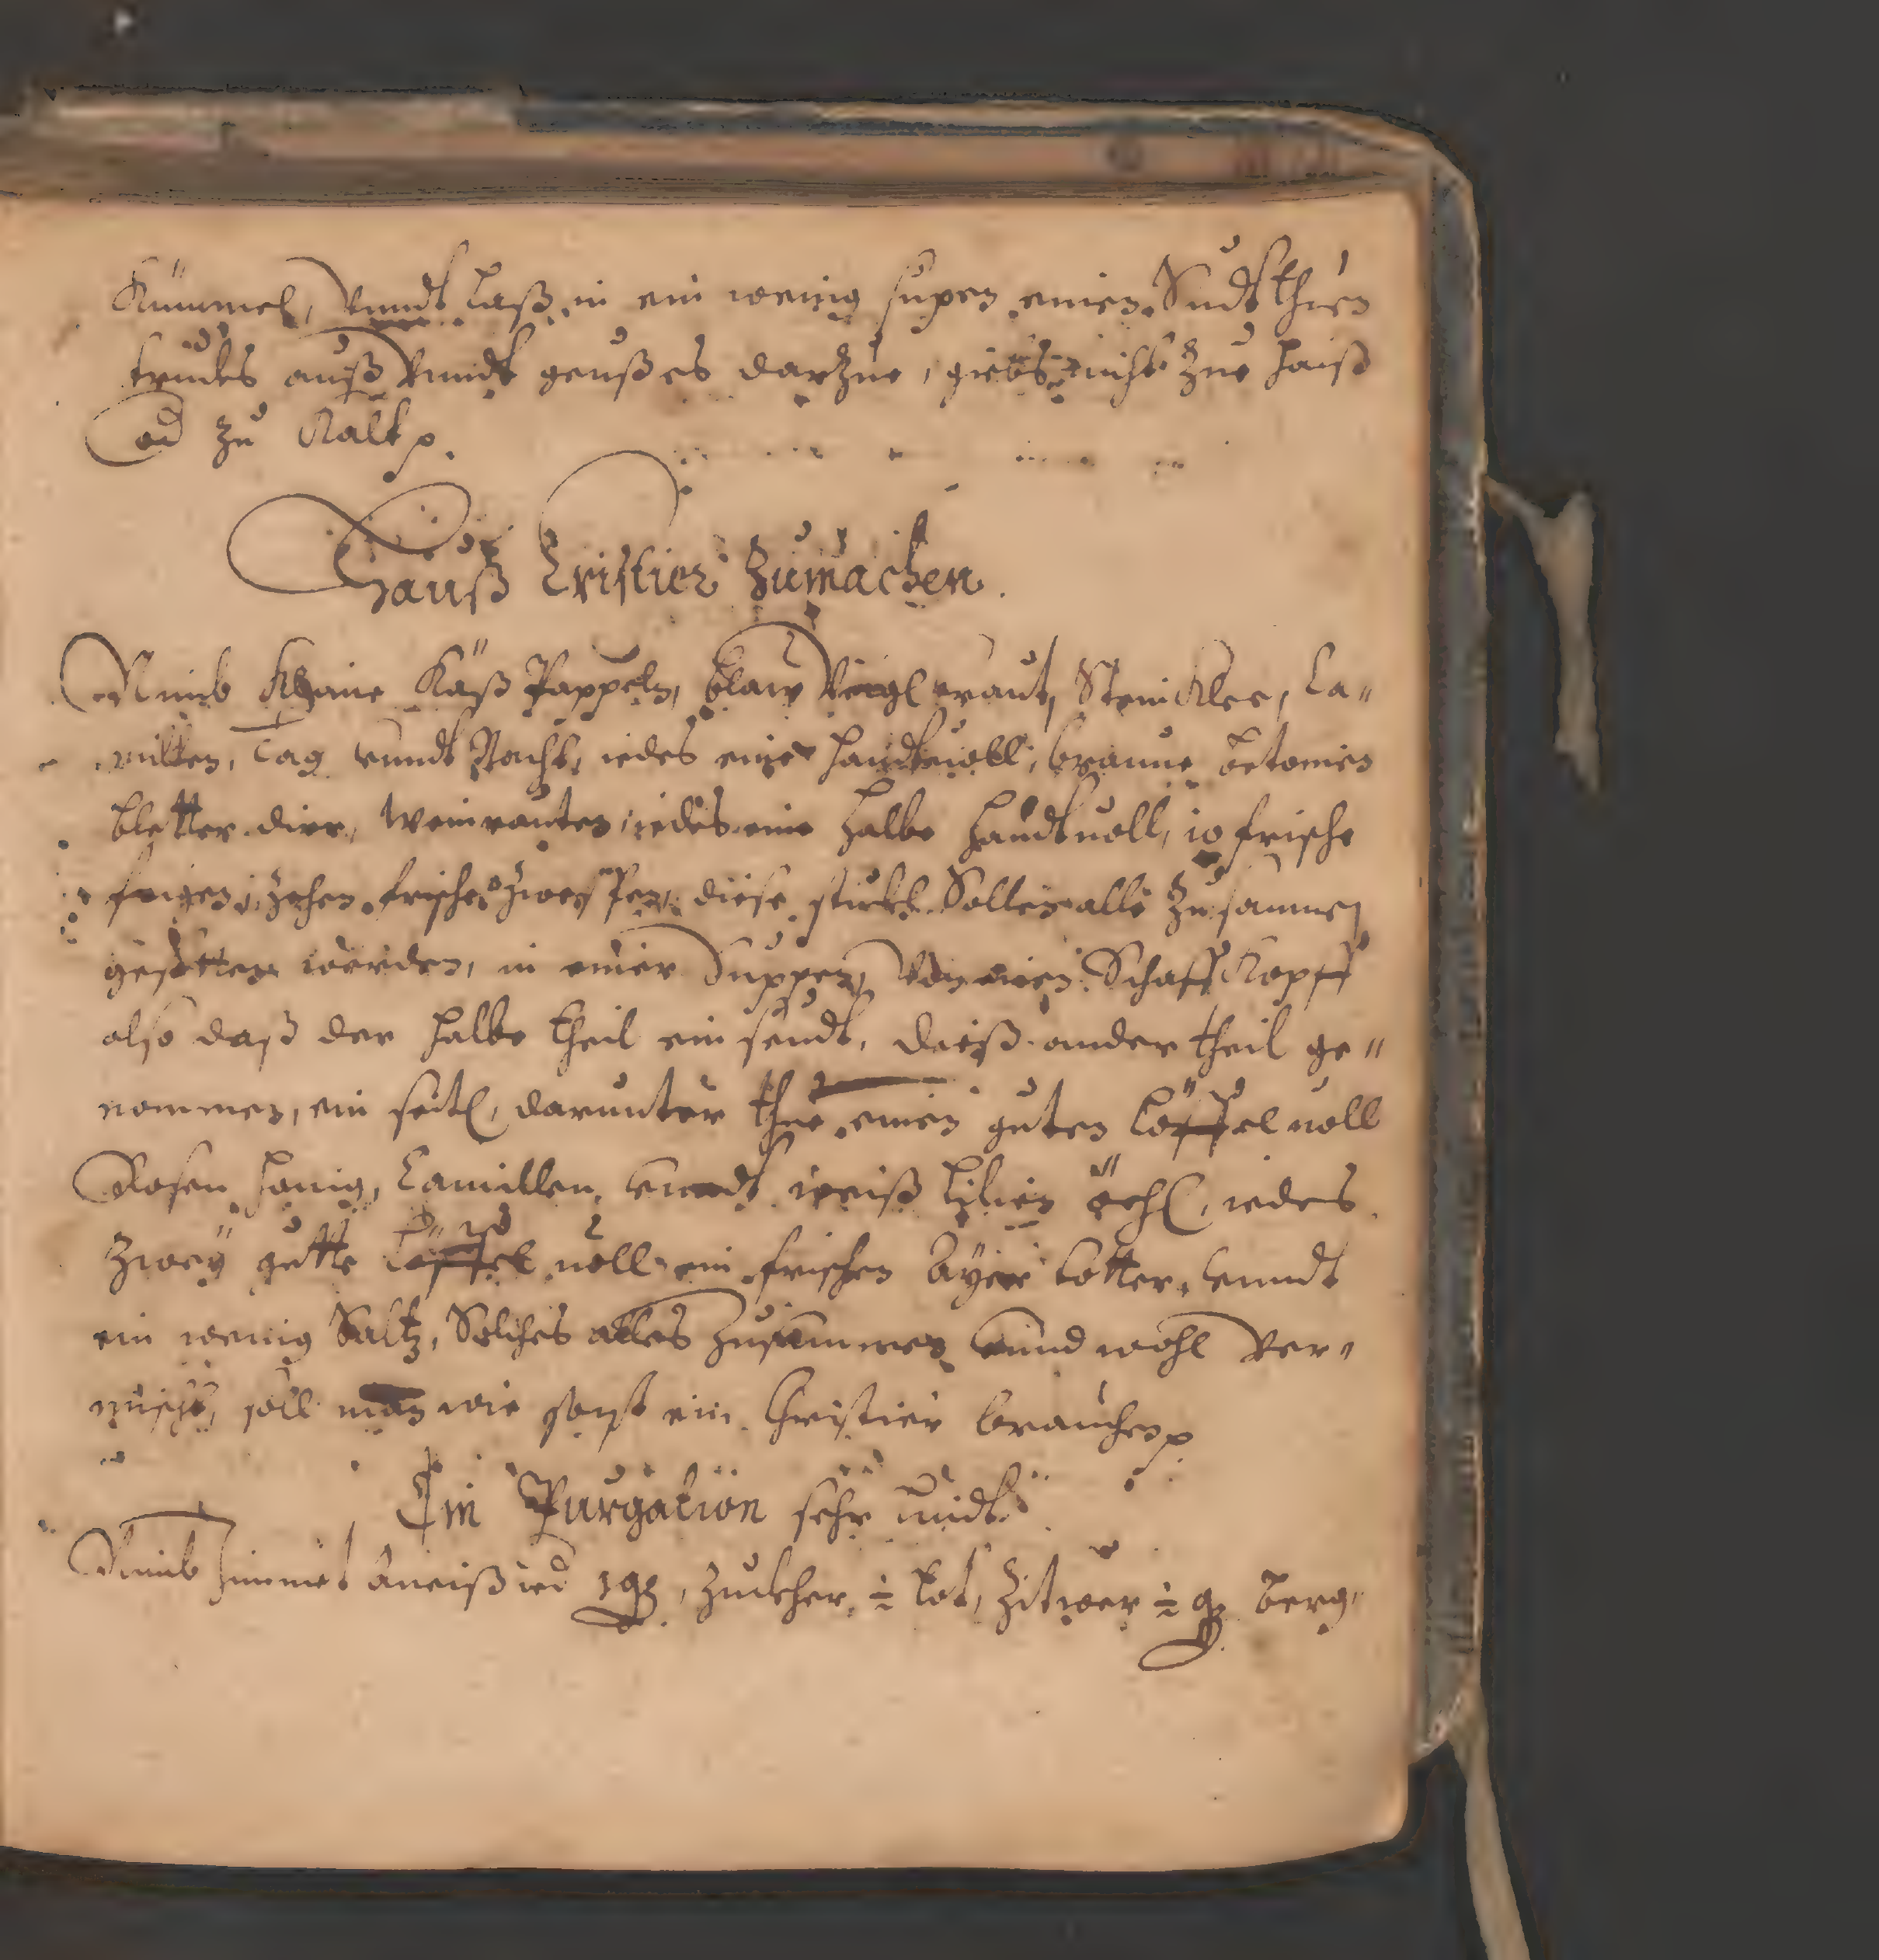 Kümmel, vnndt laß in ein wenig supen einen Sudt thuen
truckts auß vnndt geuß es darzue, giebs nicht zue haiß
od zu Kalt.
Hauß Cristier Zumachen.
Nimb Khaine Käß Pappeln, blaw Veigl kraut, Stein Klee, Ca-
millen, Tag vnndt Nacht, iedes eine handtvoll, braune Betonien
bletter dirr, Weinrauten, iedes eine halbe handtvoll, 10 frische
feigen, zehen frische Zwespen, diese stuckh Sollen alle zusammen
gesotten werden, in einer Suppen, von einen Schaff Kopff
also daß der halbe theil ein seudt, deiß ander theil ge-
nommen, ein seitl, darunter thue einen guten Löffel voll
Rosen honig, Camillen, vnndt weiß Lilien öehl, iedes
Zwey gutte Löffel voll ein frischen Ayer totter, vnndt
ein wenig Saltz, Solches alles Zusammen vnnd wohl ver-
mischt, soll man wie sonst ein Christier brauchen.
Ein Purgation sehr
Nimb Zimmet Aneiß ied 1 q, Zuckher ½ lot, Zitwer ½ q Berg-